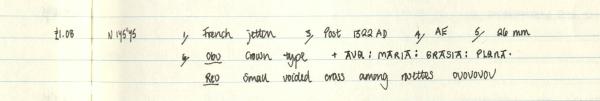 £1.08 N 145'45 1, French jetton 3, Post 1322 AD 4, AE 5, 26 mm
6, Obv Crown type + AVE : MARIA : GRASIA : PLENA .
Rev Small voided cross among rosettes OVOVOVOV